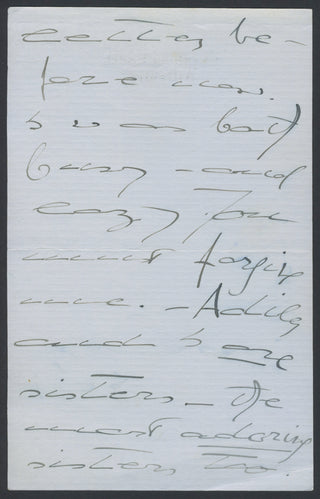 letter be-
fore now.
I was both
busy - and
lazy. You
must forgive
me. - Adila
and I are
sisters - the
most adoring
sisters too.